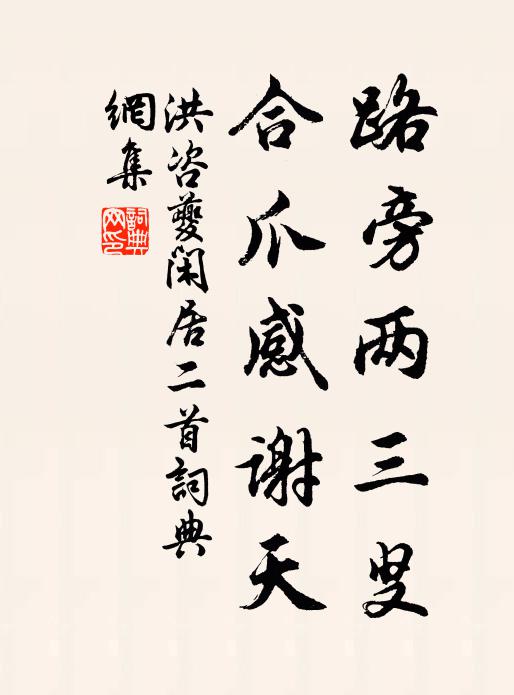 路旁两三叟
合爪感谢天
洪咨夔閑居二首詞典
網集
詞典
网印